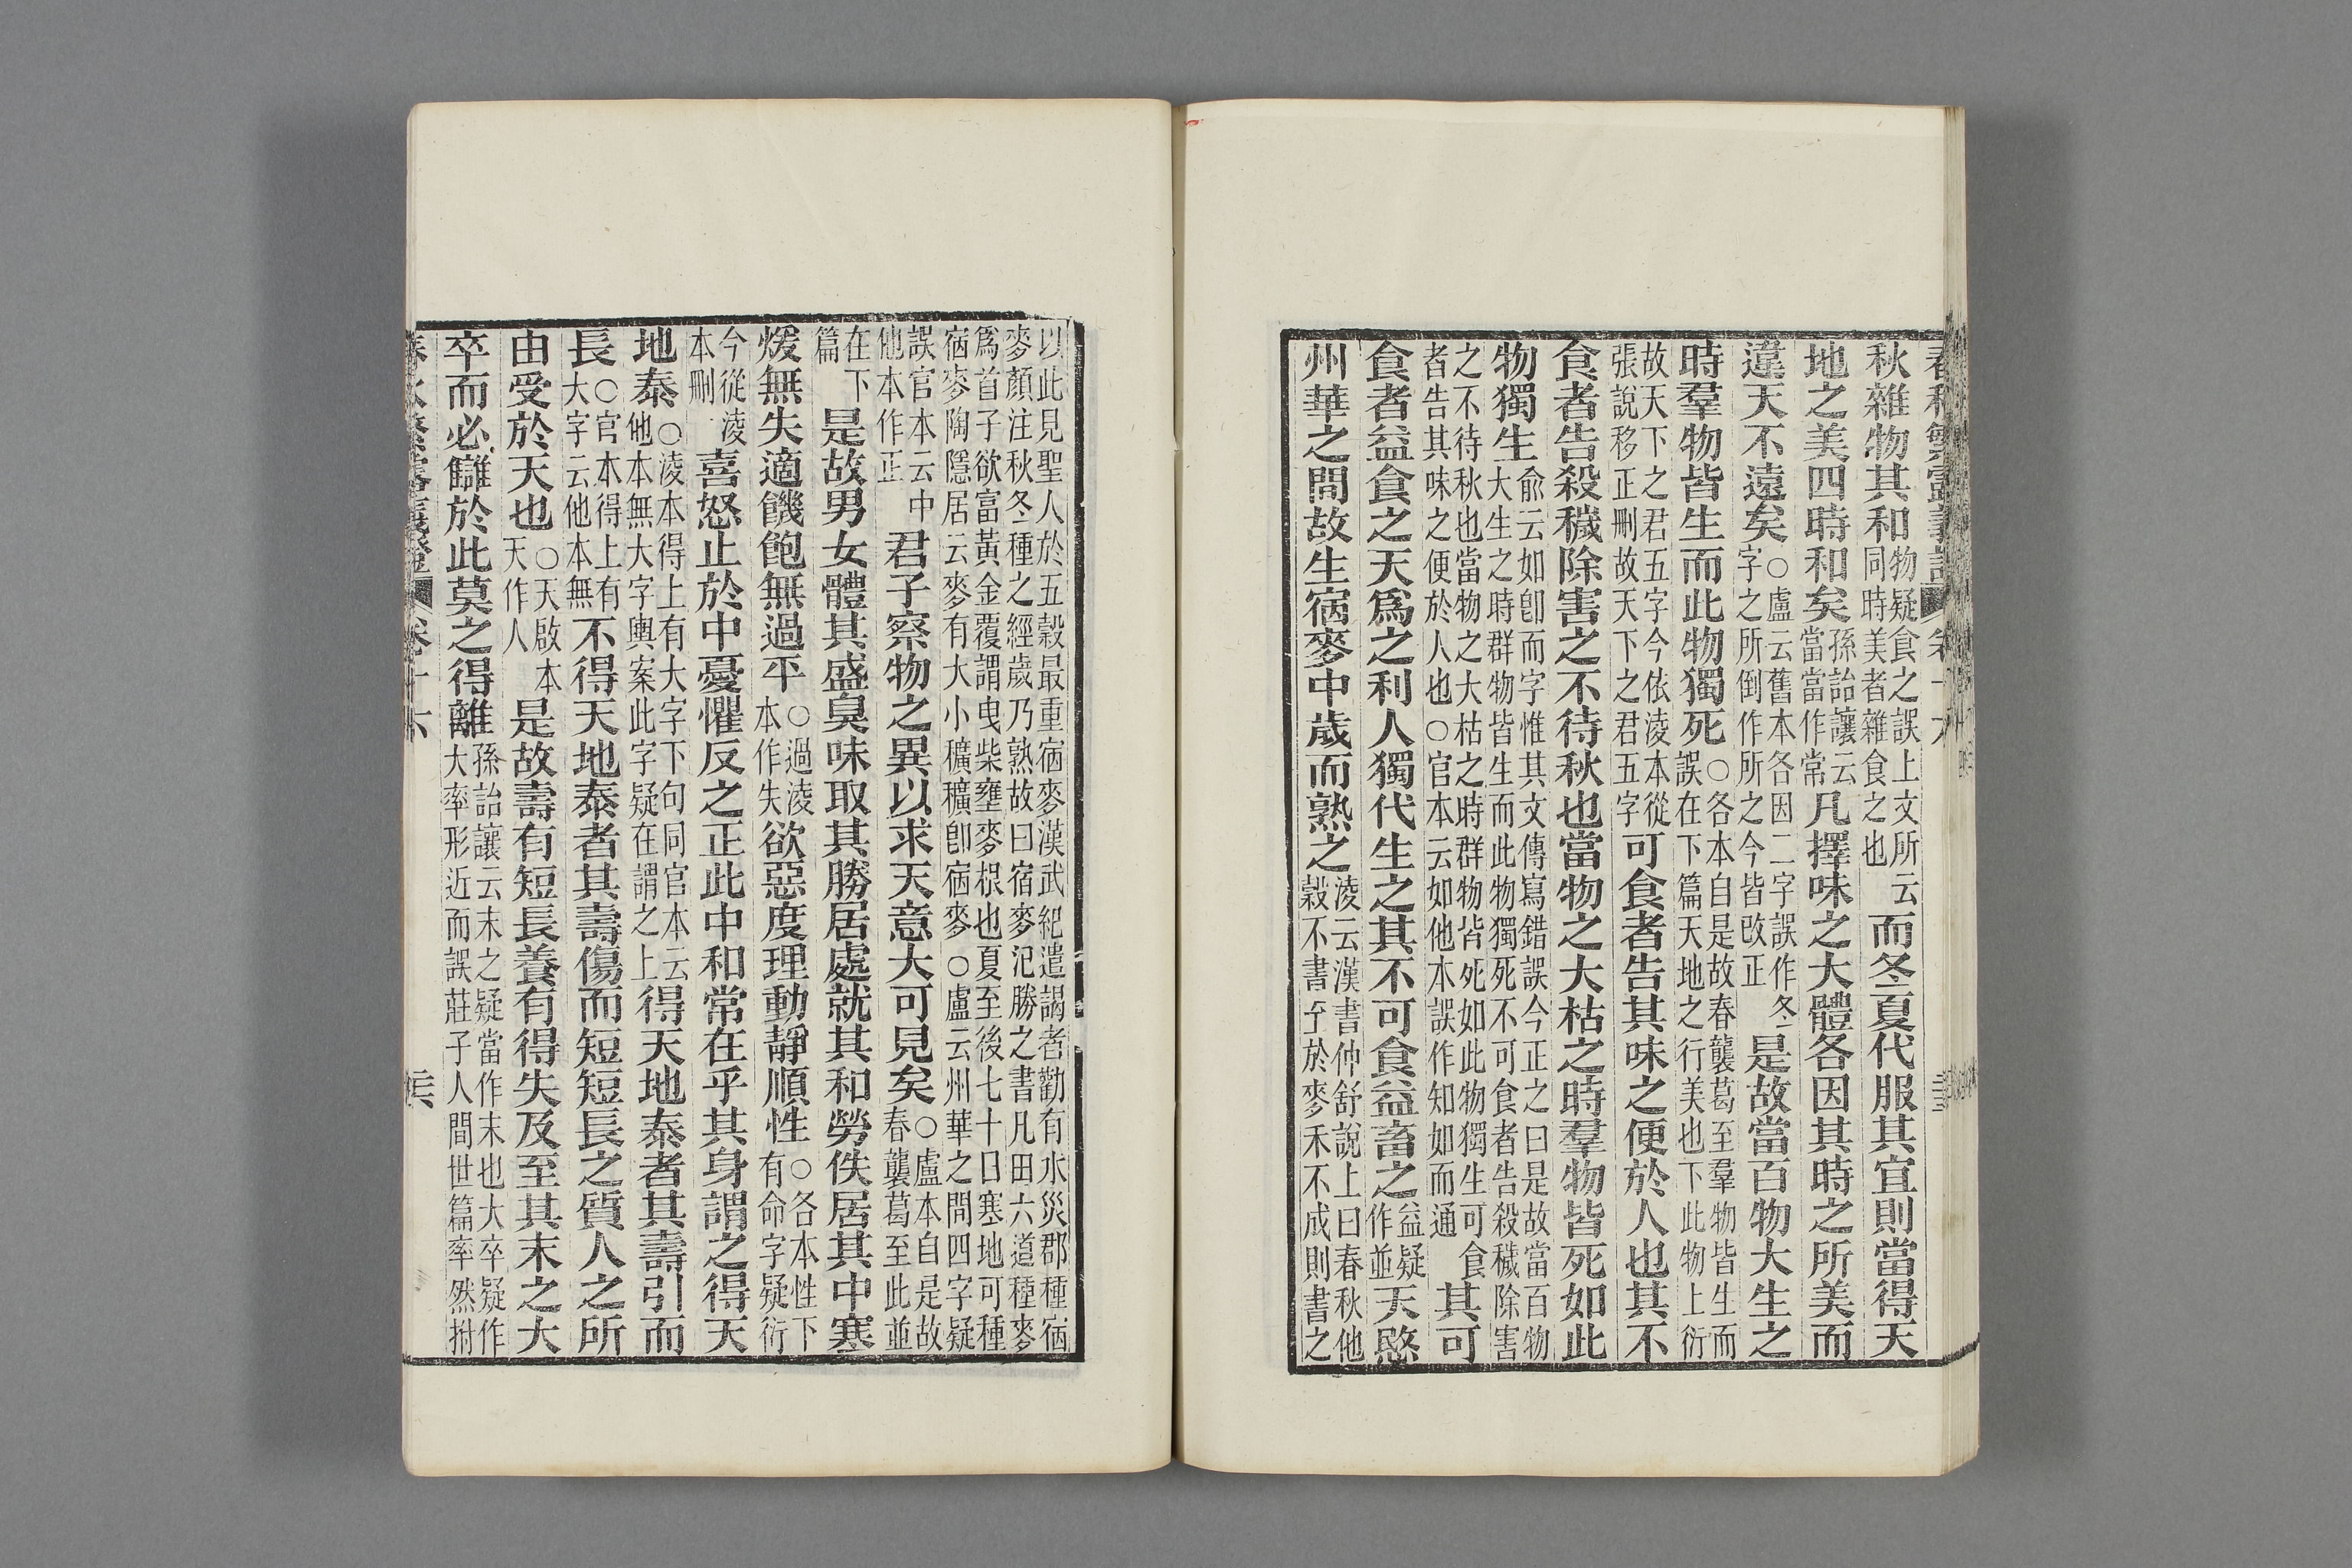 秋雜物其和物疑食之誤上文所云同時美者雜食之也而冬夏代服其宜則當得天
地之美四時和矣孫詒讓云當當作常凡擇味之大體各因其時之所美而
違天不遠矣○盧云舊本各因二字誤作冬字之所倒作所之今皆改正是故當百物大生之
時羣物皆生而此物獨死○各本自是故春襲葛至羣物皆生而誤在下篇天地之行美也下此物上衍
故天下之君五字今依淩本從張說移正刪故天下之君五字可食者告其味之便於人也其不
食者告殺穢除害之不待秋也當物之大枯之時羣物皆死如此
物獨生俞云如卽而字惟其文傳寫錯誤今正之曰是故當百物大生之時群物皆生而此物獨死不可食者告殺穢除害
之不待秋也當物之大枯之時群物皆死如此物獨生可食者告其味之便於人也○官本云如他本誤作知如而通其可
食者益食之天爲之利人獨代生之其不可食益畜之益疑作並天愍
州華之間故生宿麥中歲而熟之淩云漢書仲舒說上曰春秋他穀不書至於麥禾不成則書之
以此見聖人於五穀最重宿麥漢武紀遣謁者勸有水災郡種宿麥顏注秋冬種之經歲乃熟故曰宿麥氾勝之書凡田六道種麥
爲首子欲富黃金覆謂曳柴壅麥根也夏至後七十日寒地可種宿麥陶隱居云麥有大小穬穬卽宿麥○盧云州華之間四字疑
誤官本云中他本作正君子察物之異以求天意大可見矣○盧本自是故春襲葛至此並
在下篇是故男女體其盛臭味取其勝居處就其和勞佚居其中寒
煖無失適饑飽無過平○過淩本作失欲惡度理動靜順性○各本性下有命字疑衍
今從淩本刪喜怒止於中憂懼反之正此中和常在乎其身謂之得天
地泰○淩本得上有大字下句同官本云他本無大字輿案此字疑在謂之上得天地泰者其壽引而
長○官本得上有大字云他本無不得天地泰者其壽傷而短短長之質人之所
由受於天也○天啟本天作人是故壽有短長養有得失及至其末之大
卒而必讎於此莫之得離孫詒讓云末之疑當作末也大卒疑作大率形近而誤莊子人間世篇率然拊
春秋繁露義證 卷十六